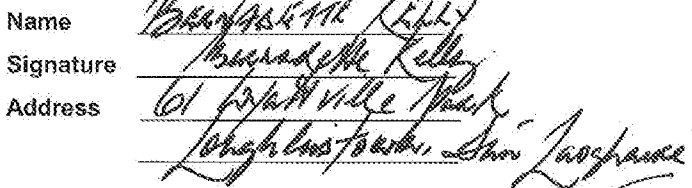 Name BERNADETTE KELLY
Signature Bernadette Kelly
Address 61 Park,
Loughlinstown, Dun Laoghaire